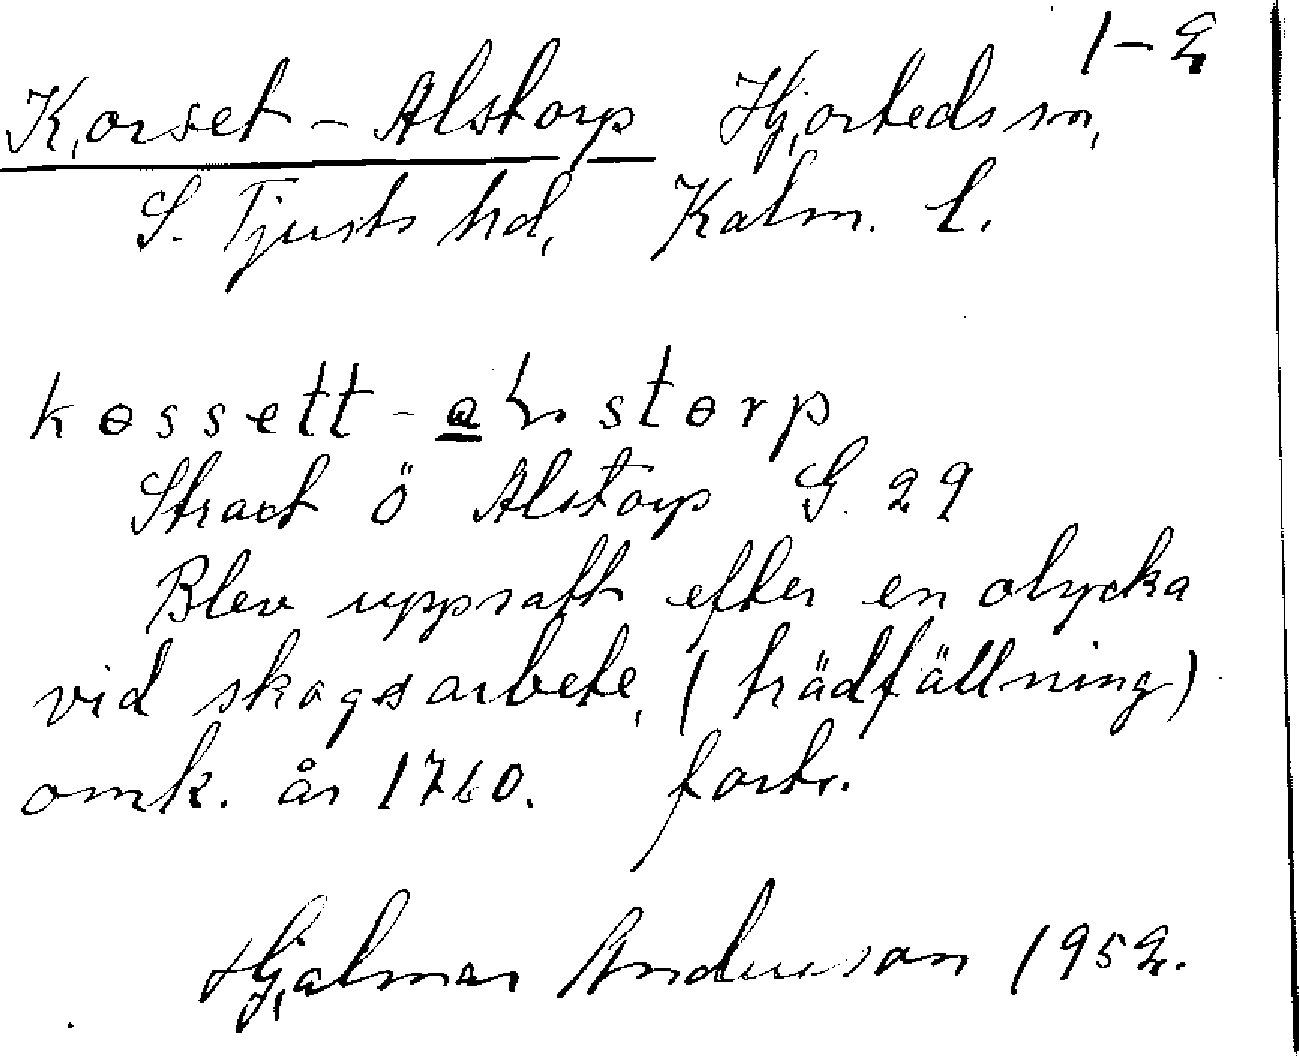 1-2
Korset-Alstorp Hjorteds sn,
S. Tjusts hd, Kalm. l.
kossett-alstorp
Strax ö Alstorp G. 29
Blev uppsatt efter en olycka
vid skogsarbete, (trädfällning)
omk. år 1760. forts.
Hjalmar Andersson 1952.